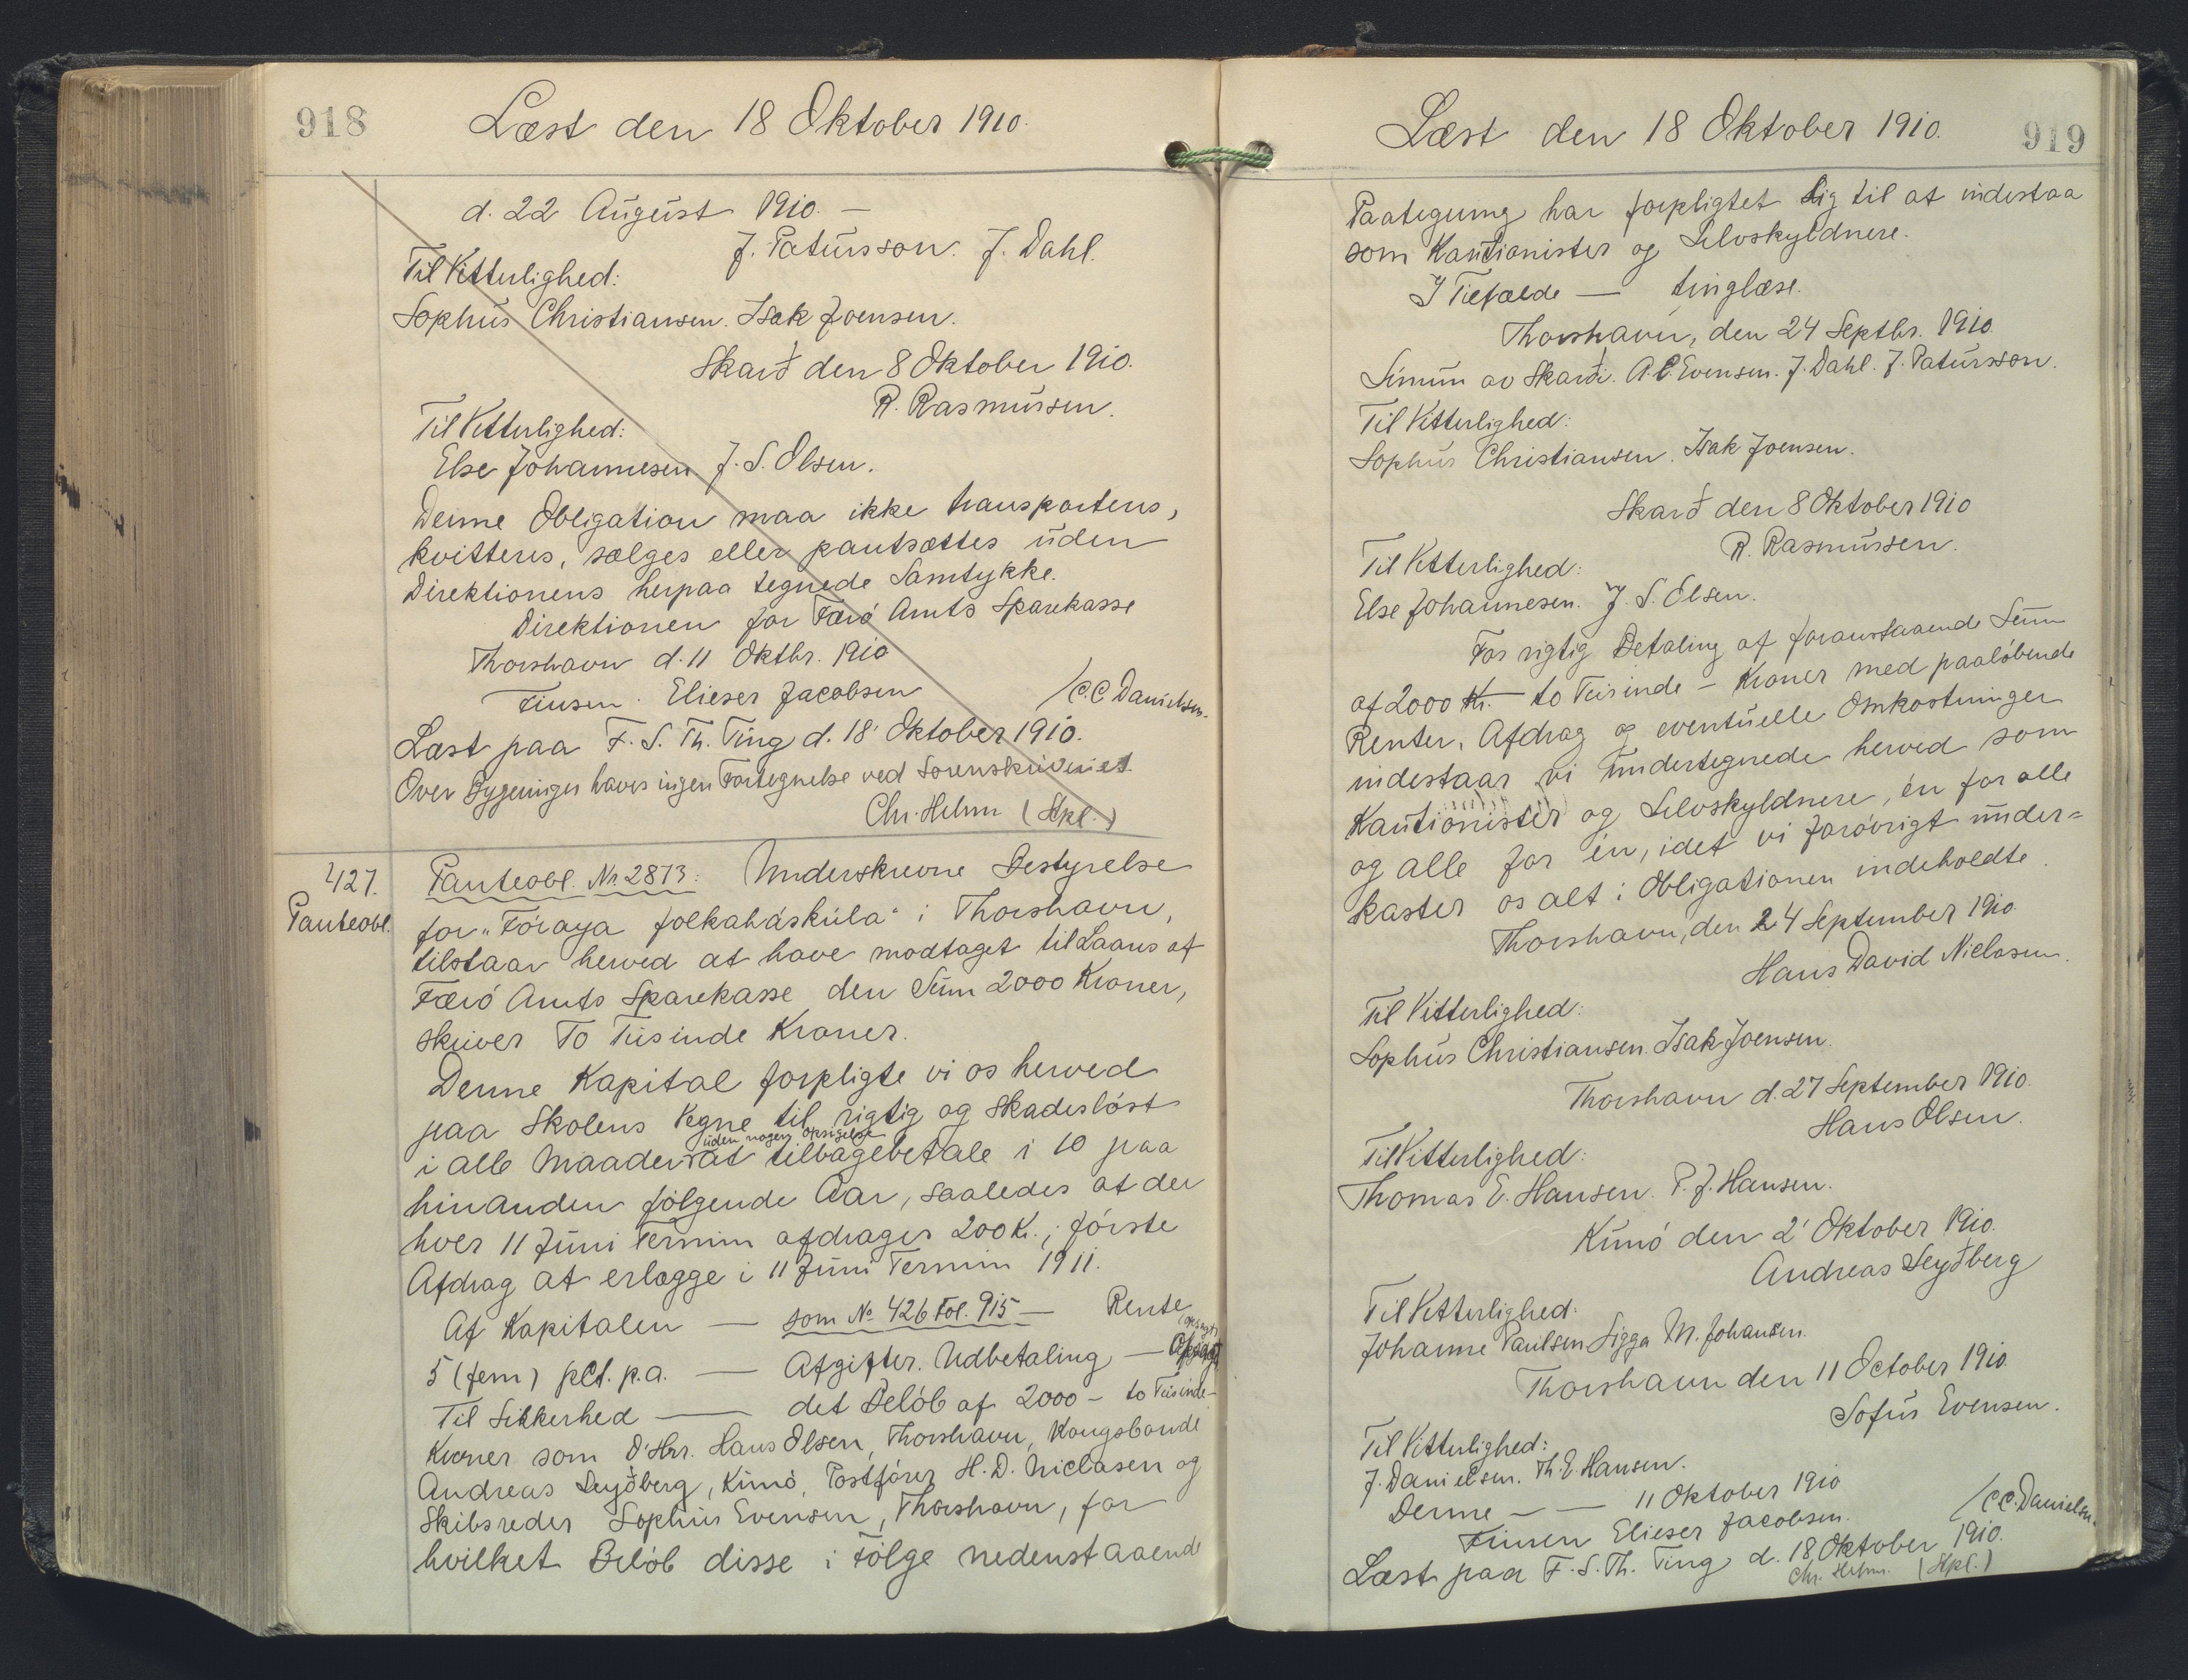 918
Læst den 18 Oktober 1910.
d. 22 August 1910. —
J. Patursson. J. Dahl.
Til Vitterlighed:
Sophus Christiansen. Isak Joensen.
Skarð den 8 Oktober 1910.
R. Rasmussen.
Til Vitterlighed:
Else Johannesen J. S. Olsen.
Denne Obligation maa ikke transporteres,
kvitteres, sælges eller pantsættes uden
Direktionens herpaa tegnede Samtykke.
Direktionen for Færø Amts Sparekasse
Thorshavn d. 11 Oktbr. 1910
Finsen. Elieser Jacobsen
/C.C Danielsen.
Læst paa F. S. Th. Ting d. 18' Oktober 1910.
Over Bygninger haves ingen Fortegnelse ved Sorenskriveriet.
Chr. Helm (Stpl.)
427.
Panteobl.
Panteobl. Nr. 2873: Underskrevne Bestyrelse
for "Föraya folkaháskúla" i Thorshavn,
tilstaar herved at have modtaget til Laans af
Færø Amts Sparekasse den Sum 2000 Kroner,
skriver To Tusinde Kroner.
Denne Kapital forpligte vi os herved
paa Skolens Vegne til rigtig og skadesløst
uden nogen opsigelse
i alle Maader at tilbagebetale i 10 paa
hinanden følgende Aar, saaledes at der
hver 11 Juni Termin afdrages 200 K.; første
Afdrag at erlægge i 11 Juni Termin 1911.
Af Kapitalen — som No 426 Fol. 915 — Rente
5 (fem) pCt. p.a. — Afgifter. Udbetaling —
(opsagt)
Til Sikkerhed — det Beløb af 2000 – to Tusinde –
Kroner som D'Hrr. Hans Olsen, Thorshavn, Kongsbonde
Andreas Seyðberg, Kunø, Postfører H. D. Niclasen og
Skibsreder Sophus Evensen, Thorshavn, for
hvilket Beløb disse i Følge nedenstaaende
Læst den 18 Oktober 1910.
919
Paategning har forpligtet sig til at indestaa
som Kautionister og Selvskyldnere.
I Tilfælde — tinglæse.
Thorshavn, den 24 Septbr. 1910
Símun av Skarði. A. C. Evensen. J. Dahl. J. Patursson.
Til Vitterlighed:
Sophus Christiansen. Isak Joensen.
Skarð den 8 Oktober 1910
R. Rasmussen.
Til Vitterlighed:
Else Johannesen. J. S. Olsen.
For rigtig Betaling af foranstaaende Sum
af 2000 Kr. to Tusinde – Kroner med paaløbende
Renter, Afdrag og eventuelle Omkostninger
indestaar vi undertegnede herved som
Kautionister og Selvskyldnere, én for alle
og alle for én, idet vi forøvrigt under=
kaster os alt i Obligationen indeholdte.
Thorshavn, den 24 September 1910
Hans David Niclasen.
Til Vitterlighed:
Sophus Christiansen. Isak Joensen.
Thorshavn d. 27 September 1910.
Hans Olsen.
Til Vitterlighed:
Thomas E. Hansen. P. J. Hansen.
Kunø den 2' Oktober 1910.
Andreas Seyðberg
Til Vitterlighed:
Johanne Paulsen Sigga M. Johansen.
Thorshavn den 11 October 1910
Sofus Evensen.
Til Vitterlighed:
J. Danielsen. Th. E. Hansen.
Denne – — 11 Oktober 1910
Finsen Elieser Jacobsen.
/C.C. Danielsen.
Læst paa F. S. Th. Ting d. 18 Oktober 1910.
Chr. Helm. (Stpl.)